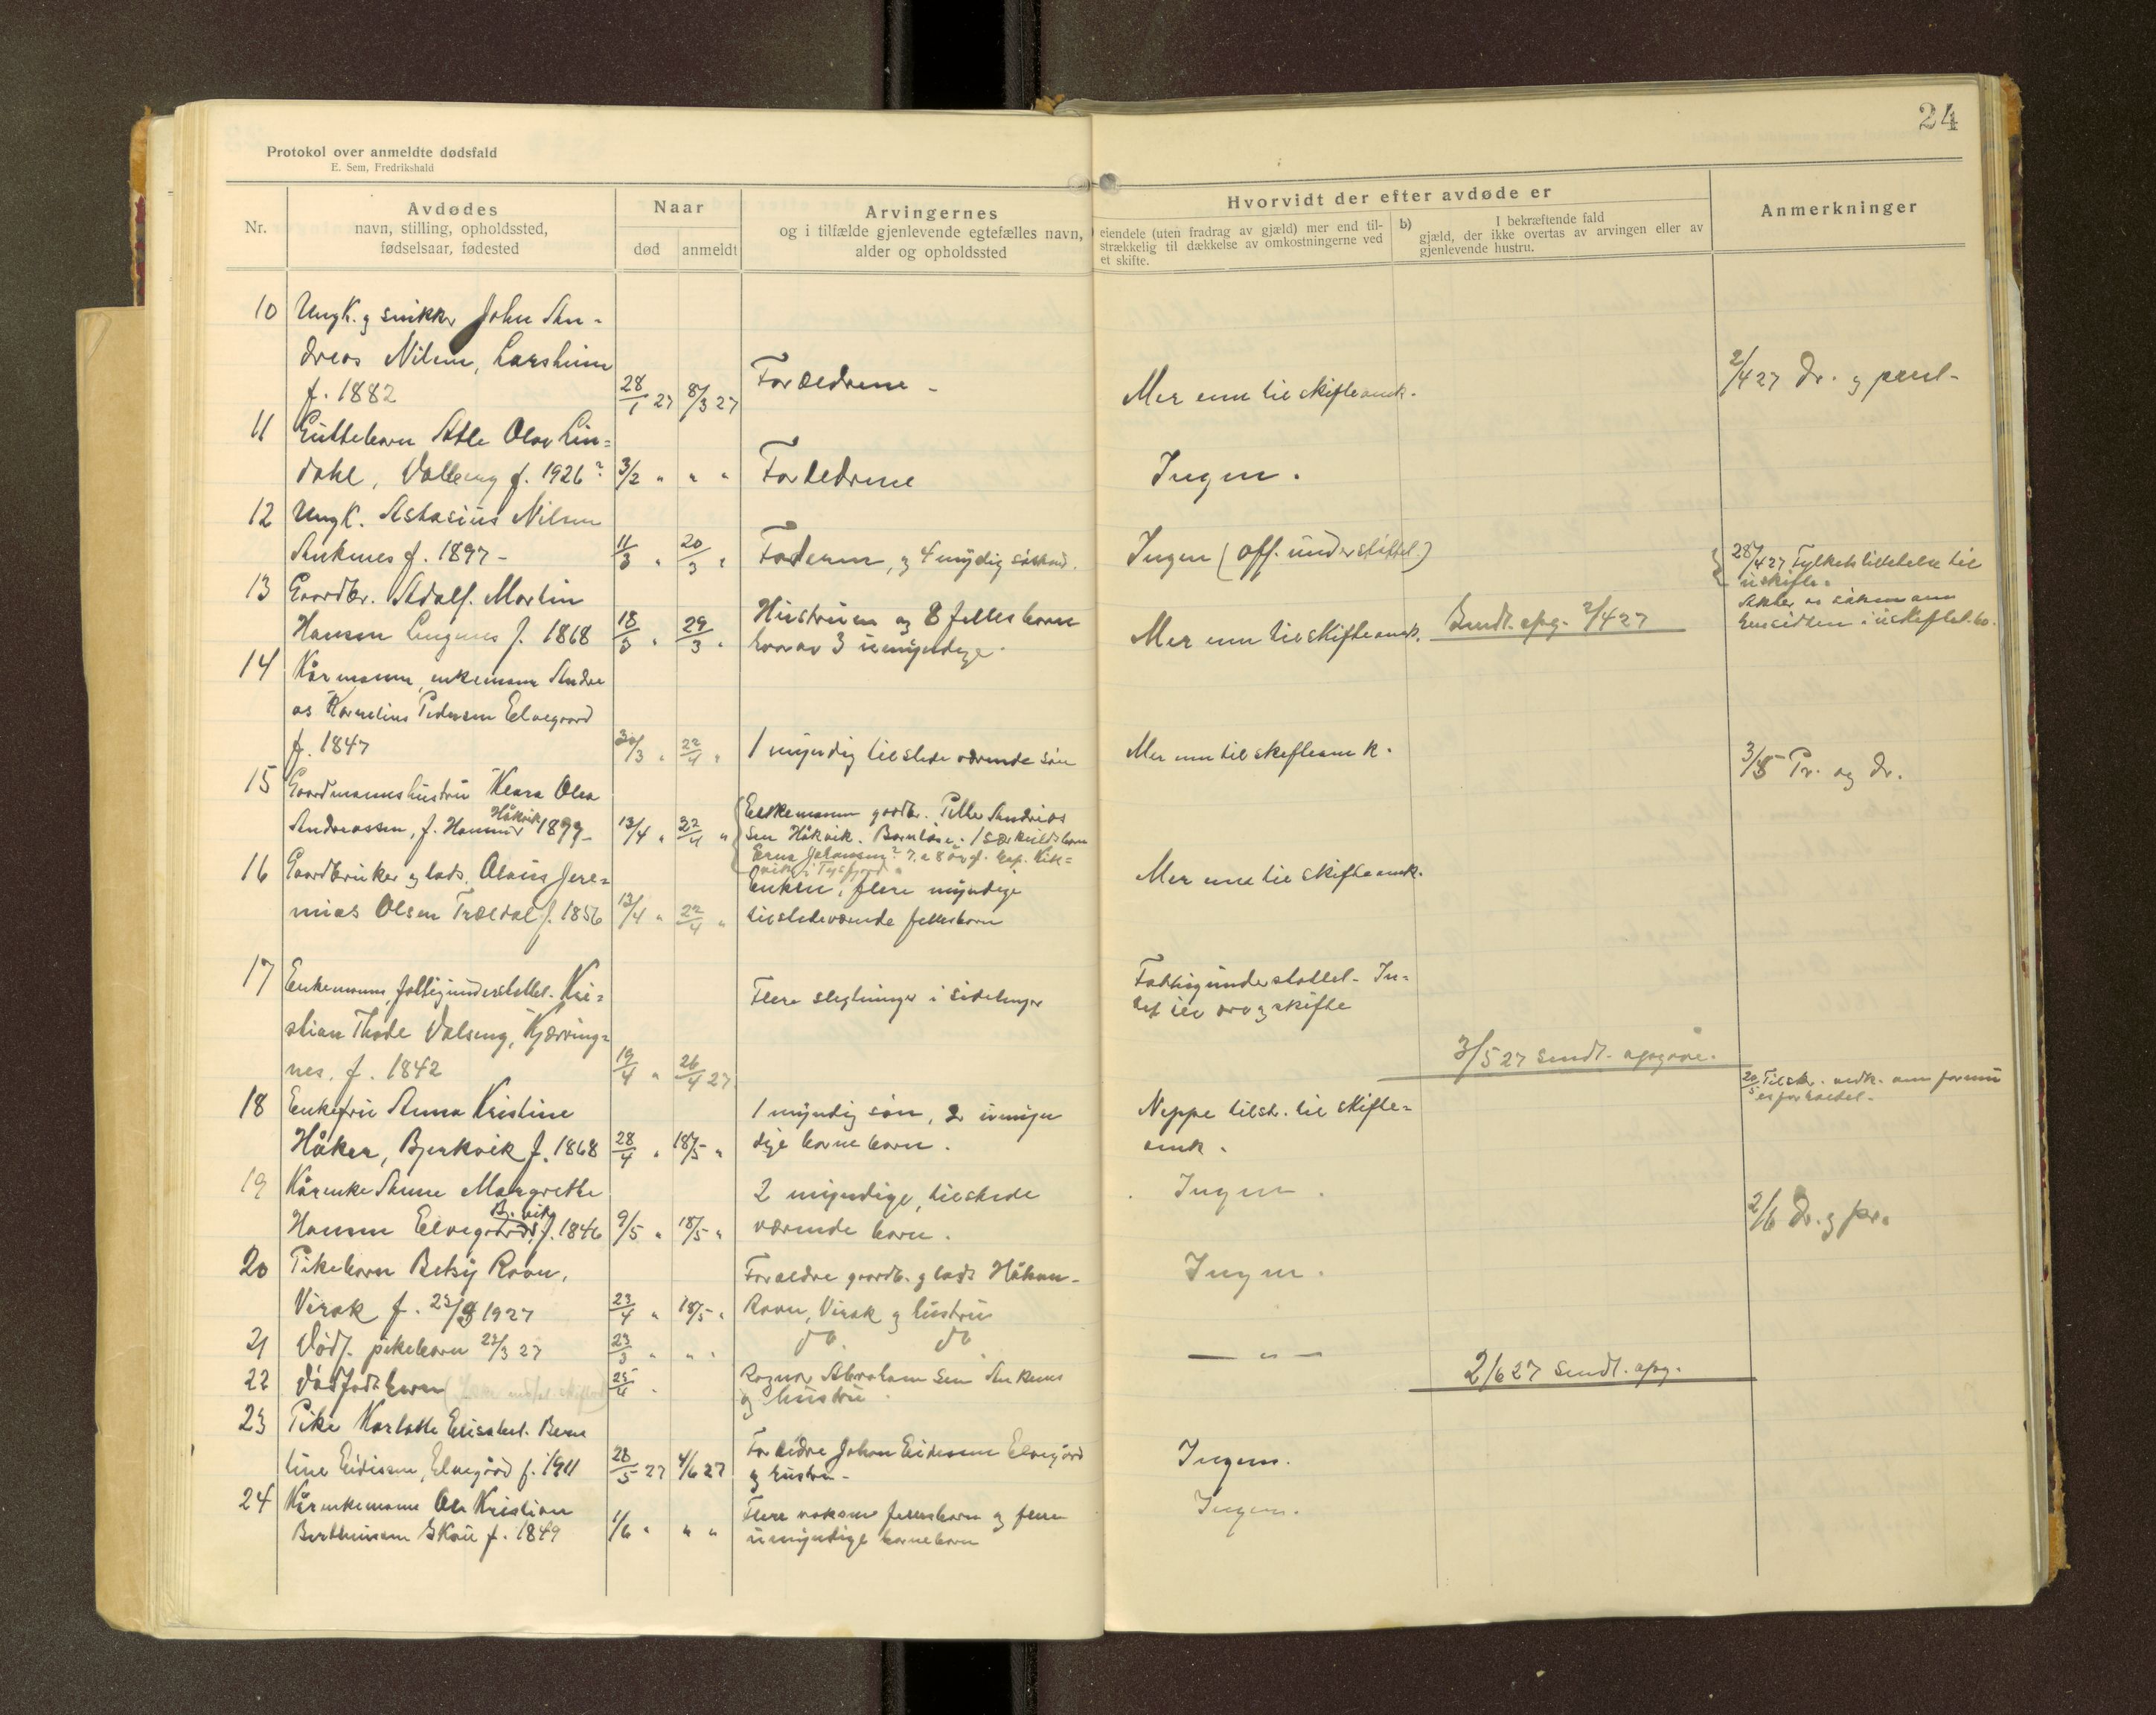 24
Protokol over anmeldte dødsfald
E. Sem, Fredrikshald
Nr.
Avdødes
navn, stilling, opholdssted,
fødselsaar, fødested
Naar
død
anmeldt
Arvingernes
og i tilfælde gjenlevende egtefælles navn,
alder og opholdssted
Hvorvidt der efter avdøde er
eiendele (uten fradrag av gjæld) mer end til-
strækkelig til dækkelse av omkostningerne ved
et skifte.
b)
I bekræftende fald
gjæld, der ikke overtas av arvingen eller av
gjenlevende hustru.
Anmerkninger
10 Ungk. og snikker John An-
dreas Nilsen, Larsheim
f. 1882 28/1 27 8/3 27 Forældrene - Mer enn til skifteomk. 2/4 27 Dr. og
11 Guttebarn Atle Olav Lin=
dahl, f. 1926? 3/2 " " " Forældrene Ingen.
12 Ungk. Astasius Nilsen
Ankenes f. 1897 - 11/3 " 20/3 " og 4 myndig søskend. Ingen (off. understøttet.)
13 Gaardbr. Adolf Martin
Hansen f. 1868 18/3 " 29/3 " Hustruen og 8 felles barn
hvorav 3 umyndige. Mer enn til skifteomk. Sendt. opg. 2/4 27
28/4 27 Fylkets tillatelse til
uskifte.
enesitten i uskiftet bo.
14 Kårmann, enkemann Andre
as Kornelius Pedersen Elvegaard
f. 1847 30/3 " 22/4 " 1 myndig tilstede værende søn Mer enn til skifteomk. 3/5 Pr. og Dr.
15 Gaardmannshustru Klara Olea
Andreassen, f. Hansen Håkvik 1899 - 13/4 " 22/4 " Enkemann gaardbr. Peder Andreas
sen Håkvik. Barnløse. 1 særkuldsbarn
Erna Johansen? 7 a 8 år
i Tysfjord
16 Gaardbruker og lads. Olaus Jere=
mias Olsen Trældal f. 1856 13/4 " 22/4 " Enken, flere myndige
tilstedeværende fellesbarn Mer enn til skifteomk.
17 Enkemann, fattigunderstøttet. Kri=
stian Thode Valseng, Kjærring=
nes. f. 1842 19/4 " 26/4 27 Flere slegtninger i sidelinjer Fattigunderstøttet - In=
tet til arv og skifte
3/5 27 sendt. opgave.
18 Enkefru Anna Kristine
Håker, Bjerkvik f. 1868 28/4 " 18/5 " 1 myndig søn, 2 umyn
dige barnebarn. Neppe tilstr. til skifte=
omk.
19 Kårenke Anne Margrethe
Hansen Elvegaard, B. vik f. 1846 9/5 " 18/5 " 2 myndige, tilstede
værende barn. Ingen. 2/6 Dr. og pr.
20 Pikebarn Betsy Ravn,
Virak f. 23/3 1927 23/4 " 18/5 " Forældre gaardb. og lads Håkon
Ravn, Virak og hustru Ingen.
21 Dødf. pikebarn 23/3 27 23/3 " " " do. do — " —
22 Dødfødt barn 25/4 " Ragnar Abrahamsen Ankenes
og hustru 2/6 27 sendt. opg.
23 Pike Karlotte Elisabet Bern
tine Eidissen, Elvegård f. 1911 28/5 27 4/6 27 Forældre Johan Eidissen Elvegård
og hustru - Ingen.
24 Kårenkemann Ole Kristian
Berthinsen Skou f. 1849 1/6 " " " Flere voksne fellesbarn og flere
umyndige barnebarn Ingen.